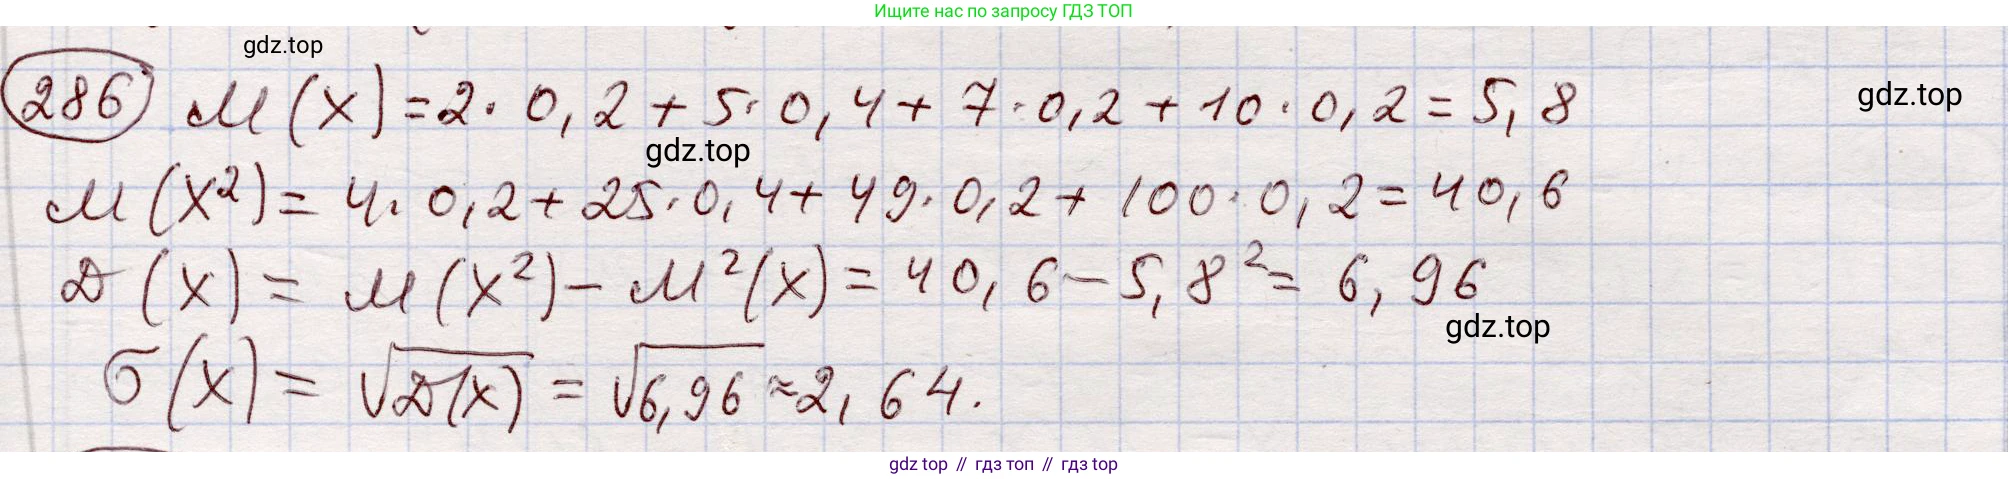 Ищите нас по запросу ГДЗ ТОП
gdz.top
286 M(X)=2·0,2+5·0,4+7·0,2+10·0,2=5,8
gdz.top
gdz.top
M(X²)=4·0,2+25·0,4+49·0,2+100·0,2=40,6
D(X)=M(X²)-M²(X)=40,6-5,8²=6,96
gdz.top
σ(X)=√D(X)=√6,96≈2,64.
gdz top // гдз топ // гдз top